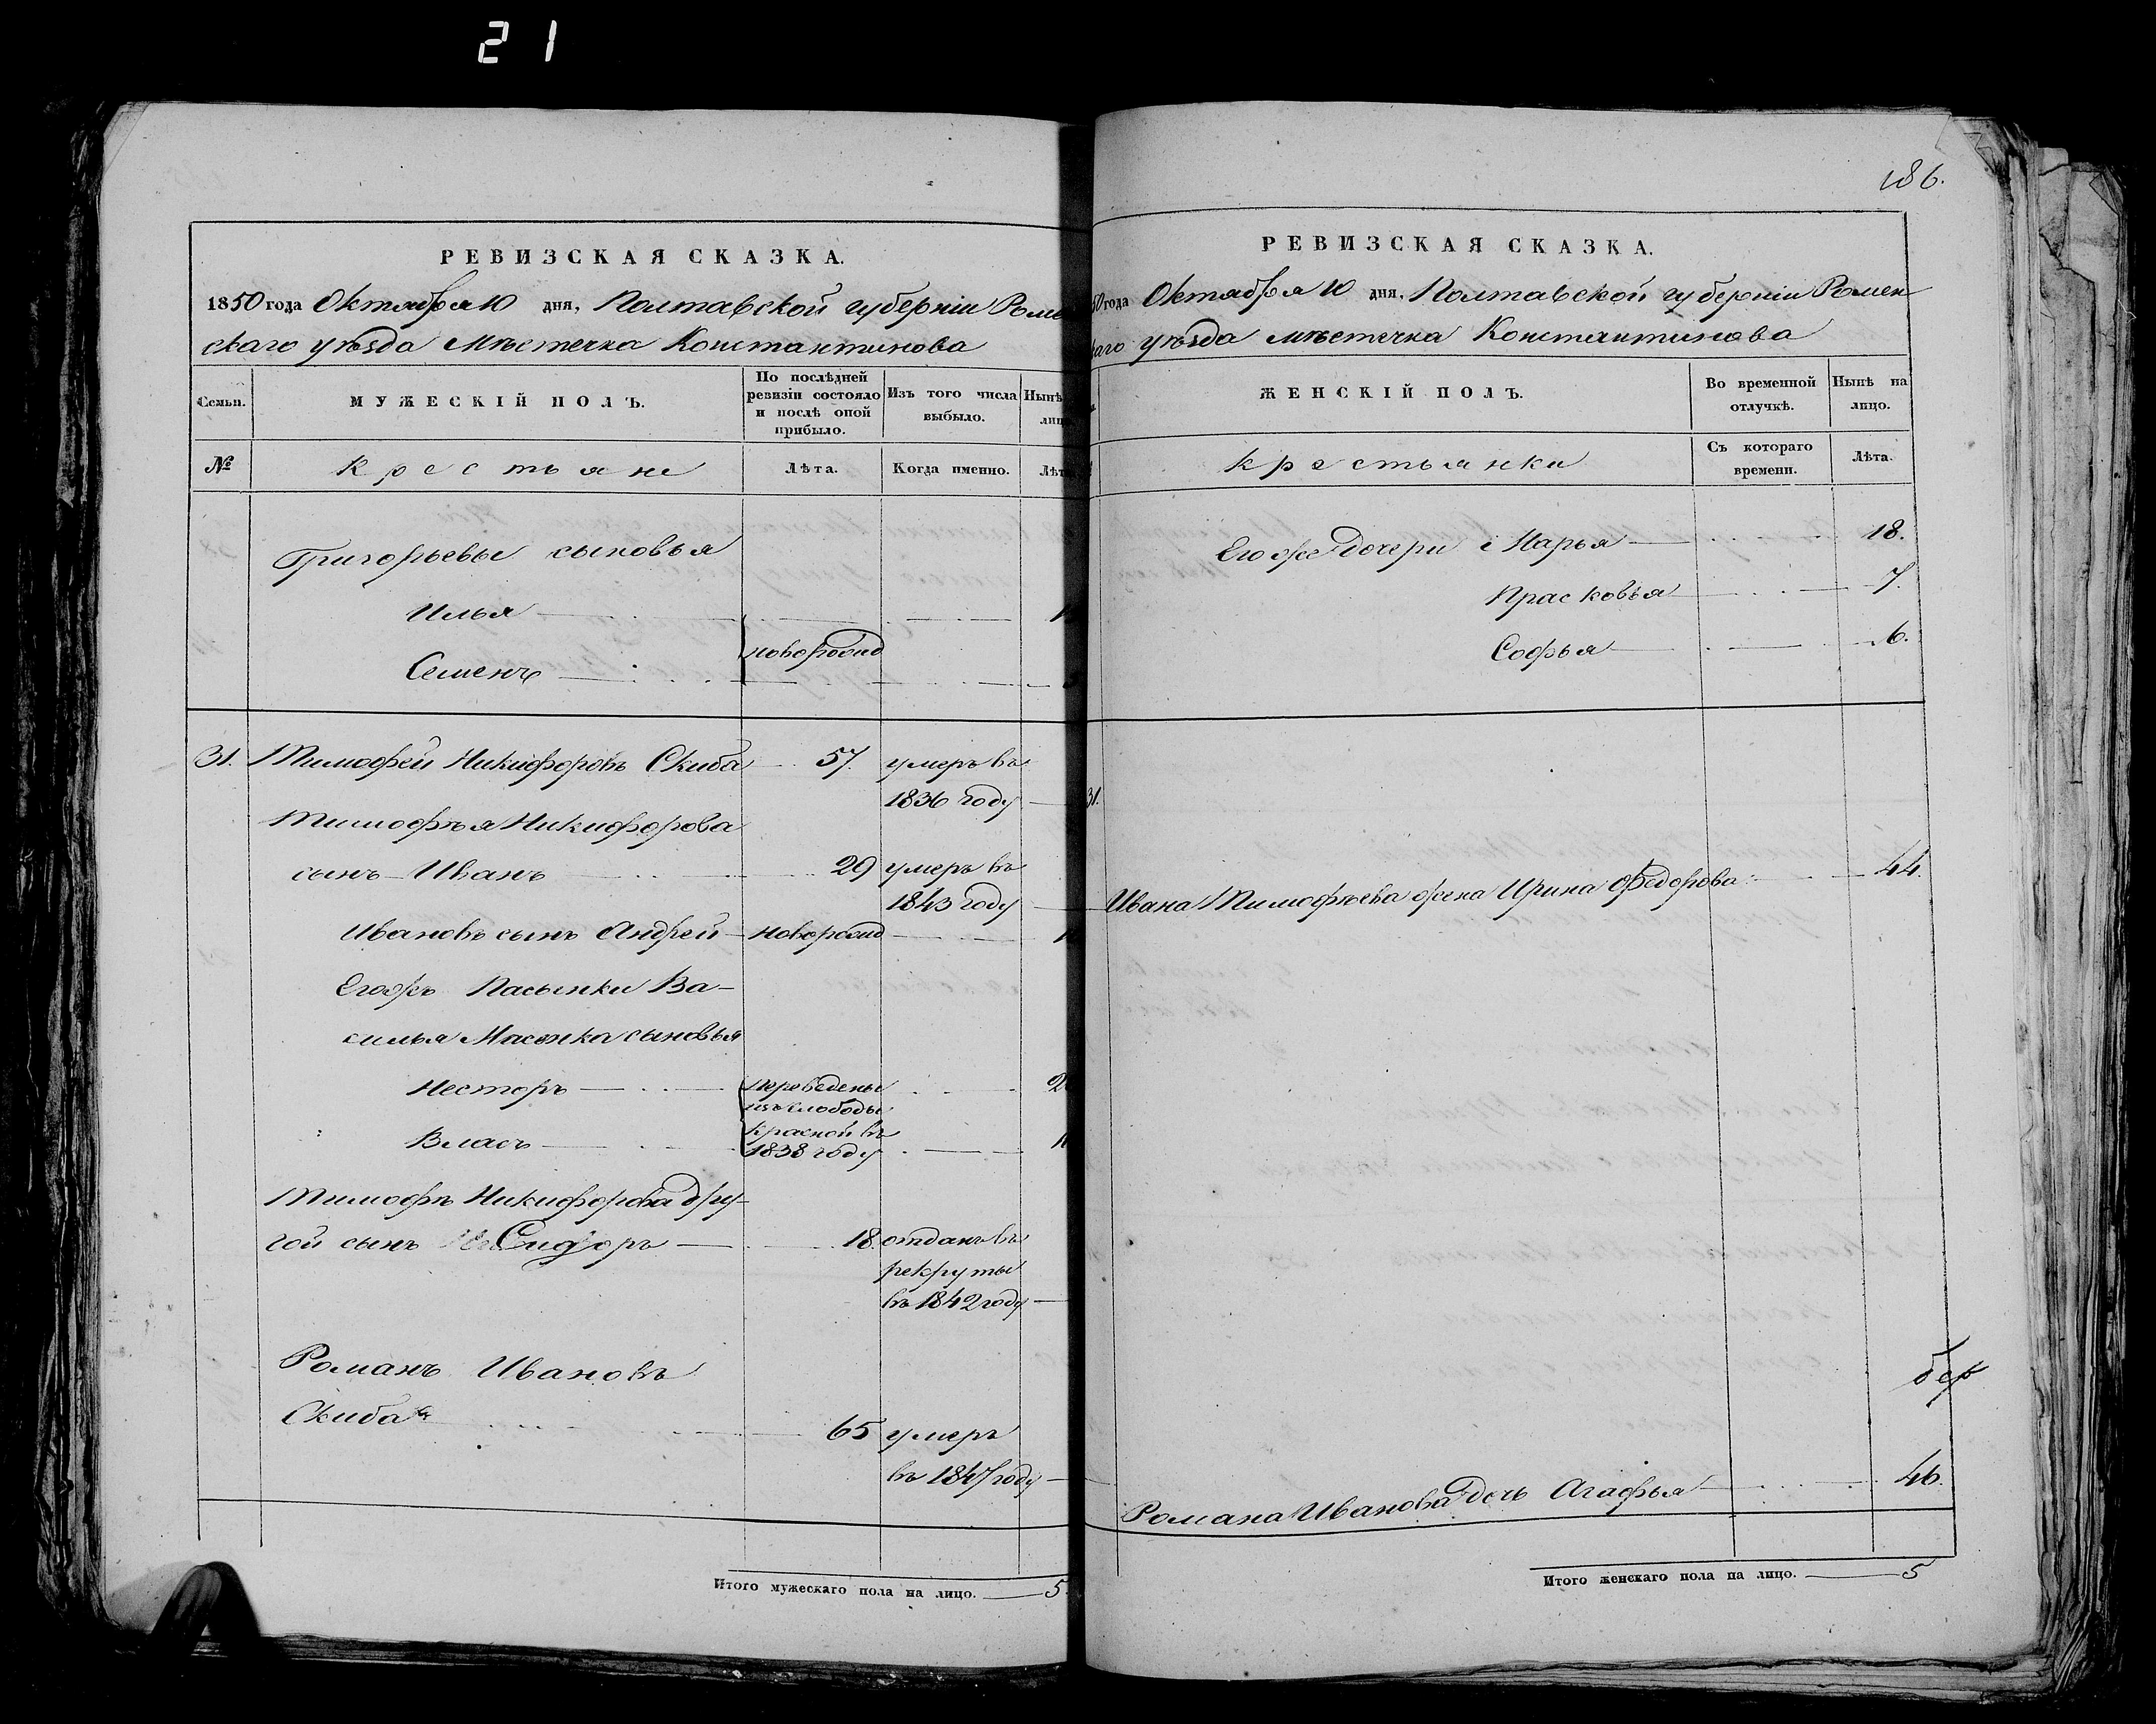 21
РЕВИЗСКАЯ СКАЗКА.
1850 года Октября 10 дня, Полтавской губерніи Роме
скаго уѣзда Мѣстечка Константинова
Семьи.
МУЖЕСКІЙ ПОЛЪ.
По послѣдней ревизіи состояло и послѣ оной прибыло.
Изъ того числа выбыло.
Нынѣ
лиц
№
Крестьяне
Лѣта.
Когда именно.
Лѣт
Григорьевы сыновья
Илья
Семенъ
новорожд
31. Тимофей Никифоровъ Скиба 57. умеръ въ
1836 году
Тимофѣя Никифорова
сынъ Иванъ 29 умеръ въ
1843 году
Ивановъ сынъ Андрей новорожд
Егожъ Пасынки Ва-
силья сыновья
Несторъ
Власъ
переведены
изъ слободы
Красной въ
1838 году
Тимофѣ Никифорова дру-
гой сынъ Сидоръ 18. отданъ въ
рекруты
въ 1842 году
Романъ Ивановъ
Скиба 65 умеръ
въ 1847 году
Итого мужескаго пола на лицо. 5
186.
РЕВИЗСКАЯ СКАЗКА.
50 года Октября 10 дня, Полтавской губерніи Ромен
каго уѣзда мѣстечка Константинова
ЖЕНСКІЙ ПОЛЪ.
Во временной отлучкѣ.
Нынѣ на лицо.
Крестьянки
Съ котораго времени.
Лѣта.
Его же дочери Марья 18.
Прасковья 7.
Софья 6.
31.
Ивана Тимофѣева жена Ирина Федорова 44.
Романа Иванова дочь Агафья 46.
Итого женскаго пола на лицо. 5